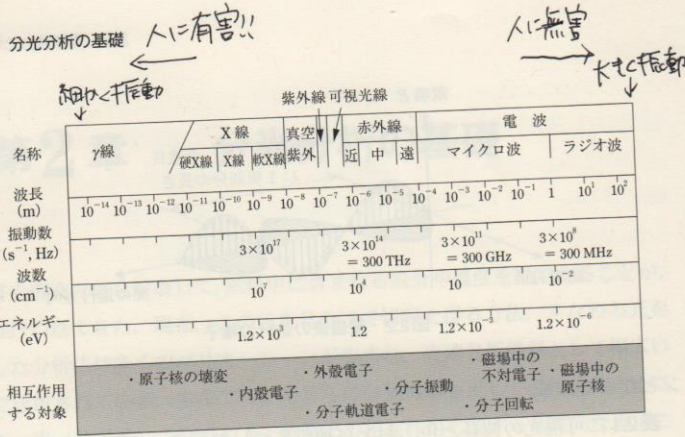 分光分析の基礎
人に有害!!
人に無害
細かく振動
大きく振動
紫外線 可視光線
名称
γ線
X 線
真空紫外
赤外線
電 波
硬X線
X線
軟X線
近
中
遠
マイクロ波
ラジオ波
波長
(m)
10⁻¹⁴ 10⁻¹³ 10⁻¹² 10⁻¹¹ 10⁻¹⁰ 10⁻⁹ 10⁻⁸ 10⁻⁷ 10⁻⁶ 10⁻⁵ 10⁻⁴ 10⁻³ 10⁻² 10⁻¹ 1 10¹ 10²
振動数
(s⁻¹, Hz)
3×10¹⁷ 3×10¹⁴ 3×10¹¹ 3×10⁸
= 300 THz = 300 GHz = 300 MHz
波数
(cm⁻¹)
10⁷ 10⁴ 10 10⁻²
エネルギー
(eV)
1.2×10³ 1.2 1.2×10⁻³ 1.2×10⁻⁶
相互作用
する対象
・原子核の壊変
・内殻電子
・外殻電子
・分子軌道電子
・分子振動
・分子回転
・磁場中の
不対電子
・磁場中の
原子核